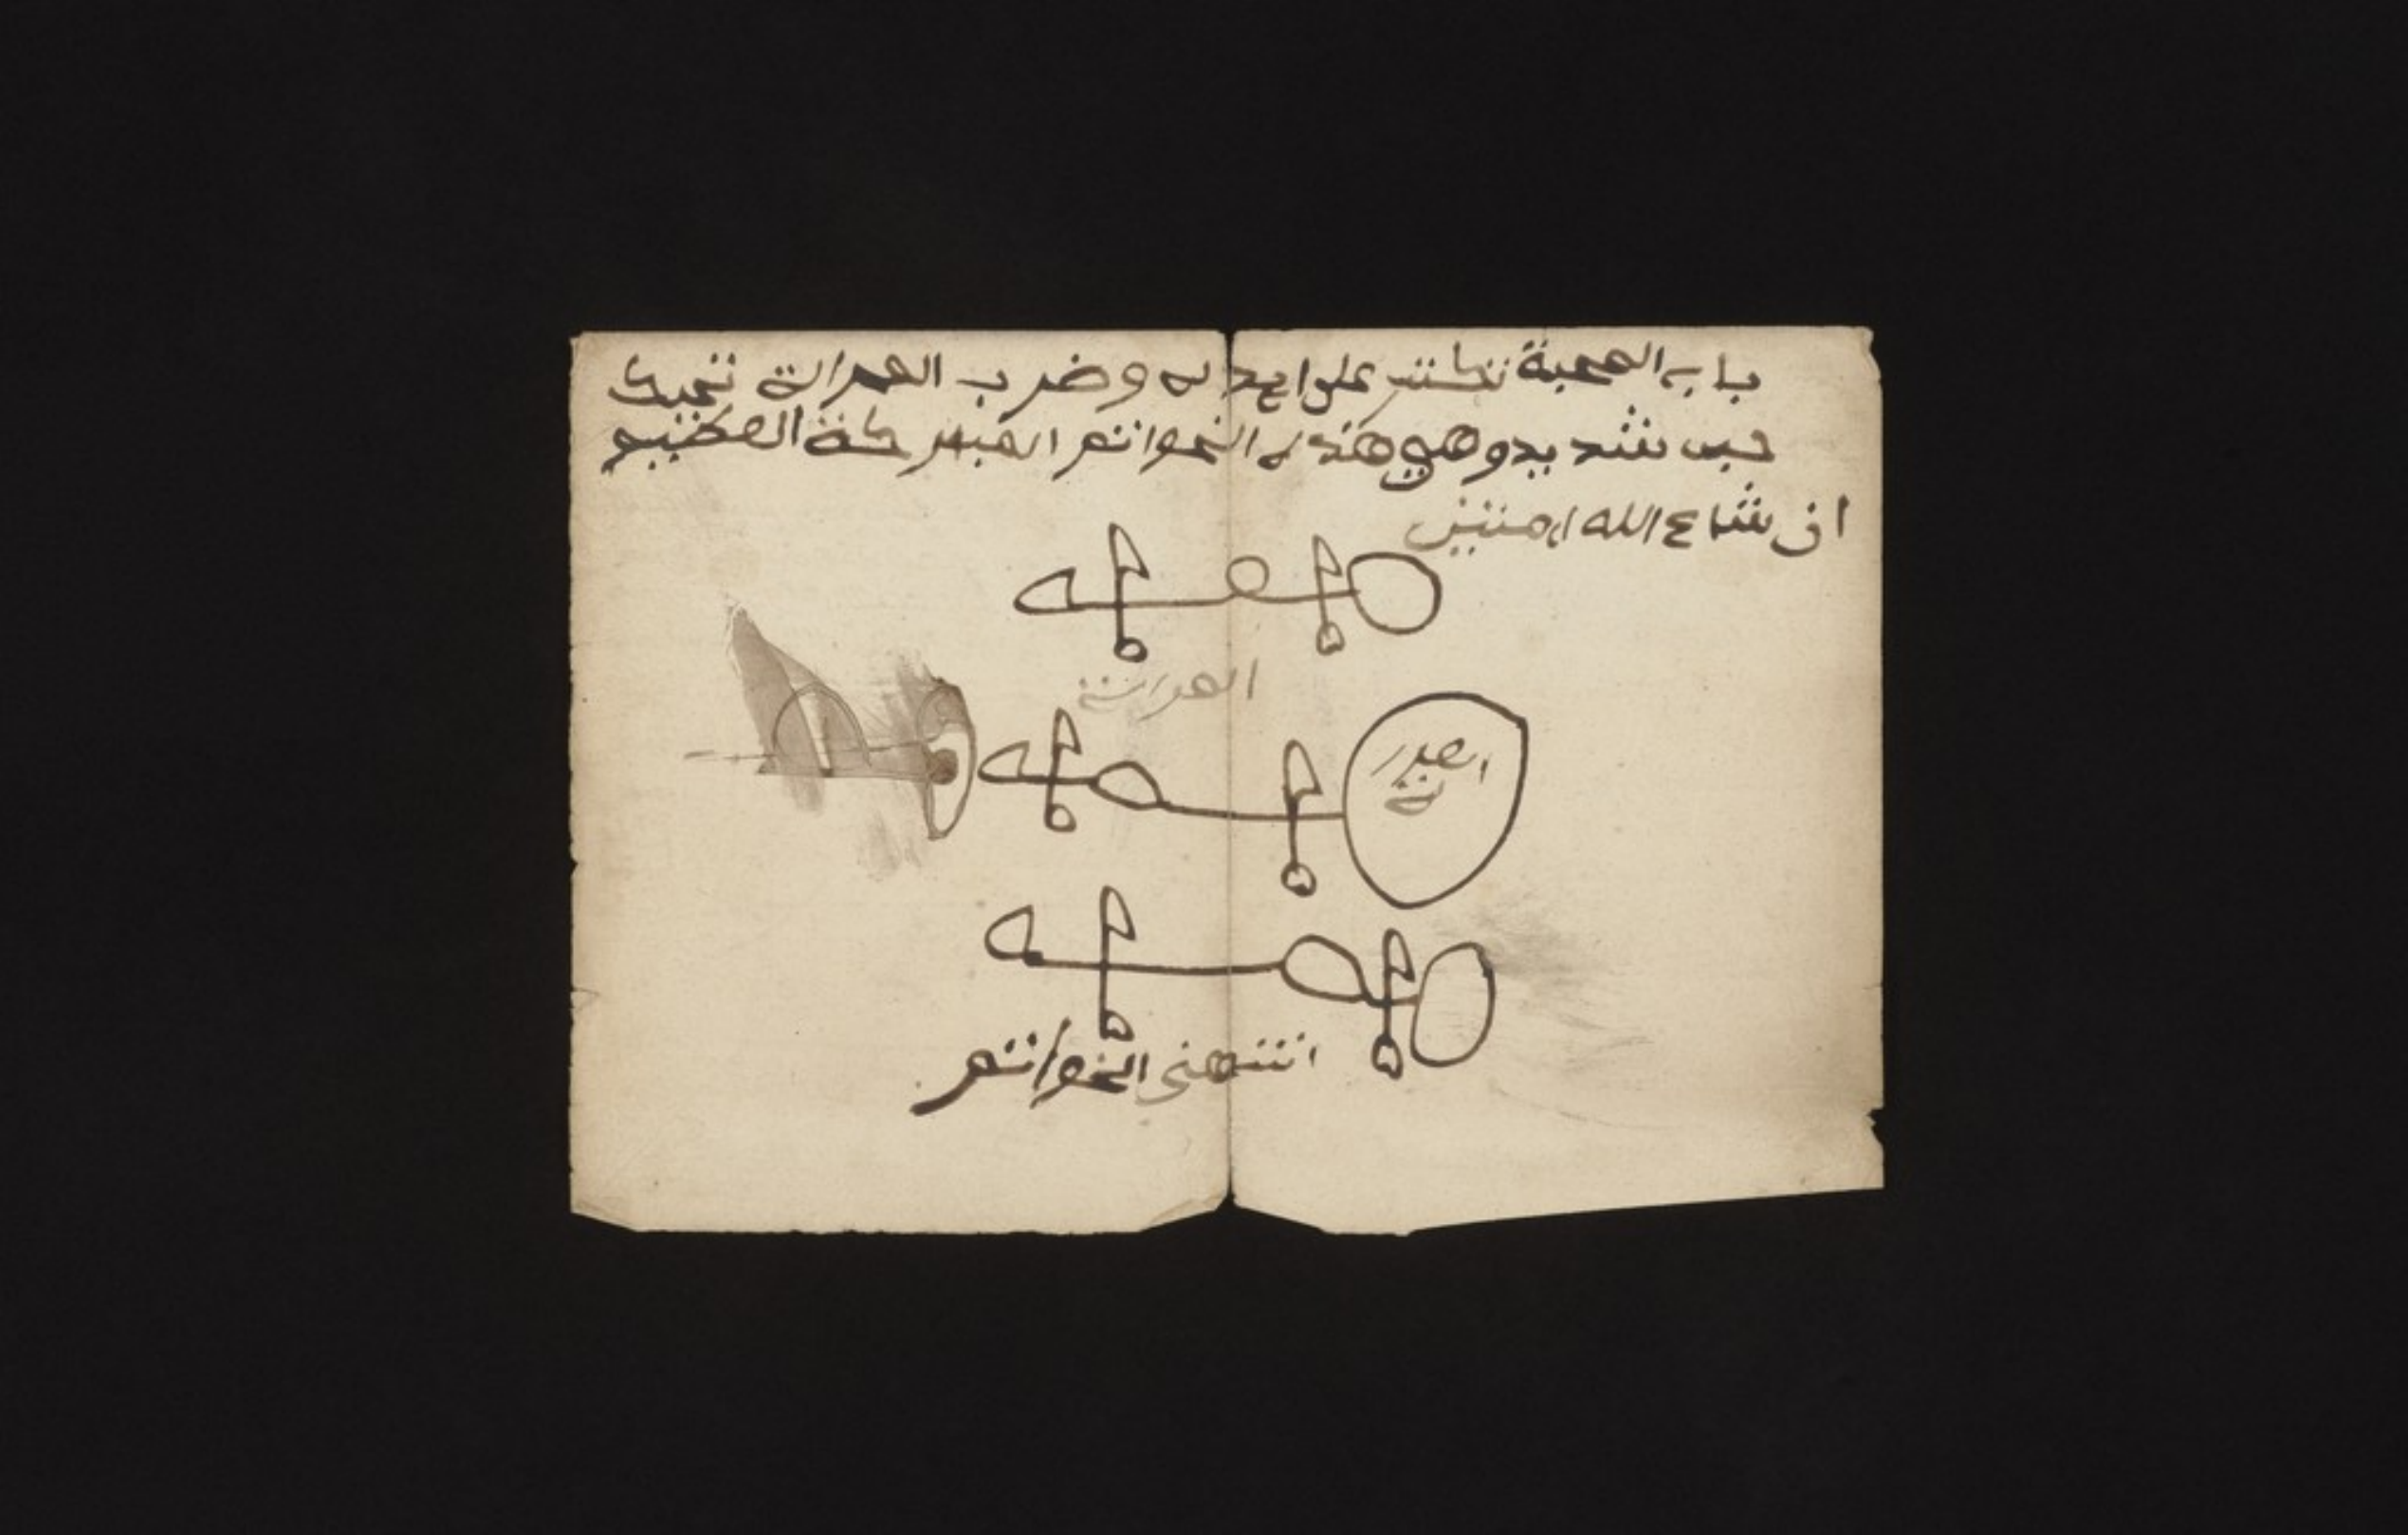 باب المحبة تكتب على ايدك وضرب المراة تحبك
حب شديد وهي هذه الخواتم المباركة العظيم
ان شاء الله امين
المراة
انتهى الخواتم